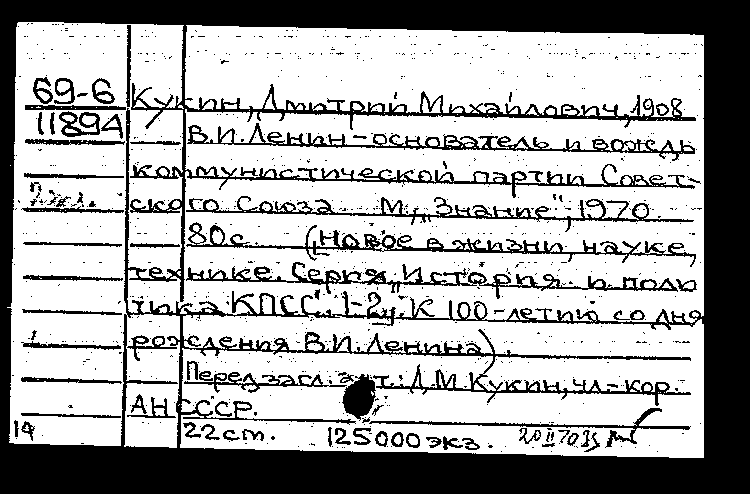 69-6 Кукин, Дмитрий Михайлович, 1908
11894 В.И.Ленин-основатель и вождь
коммунистической партии Совет-
ского Союза. М., „Знание", 1970.
80с. (Новое в жизни, науке,
технике. Серия „История и поли
тика КПСС". 1-2. К 100-летию со дня
рождения В.И.Ленина).
Перед загл. авт.: Д.М.Кукин, чл.-кор.
АН СССР.
14 22 ст. 125000 экз.